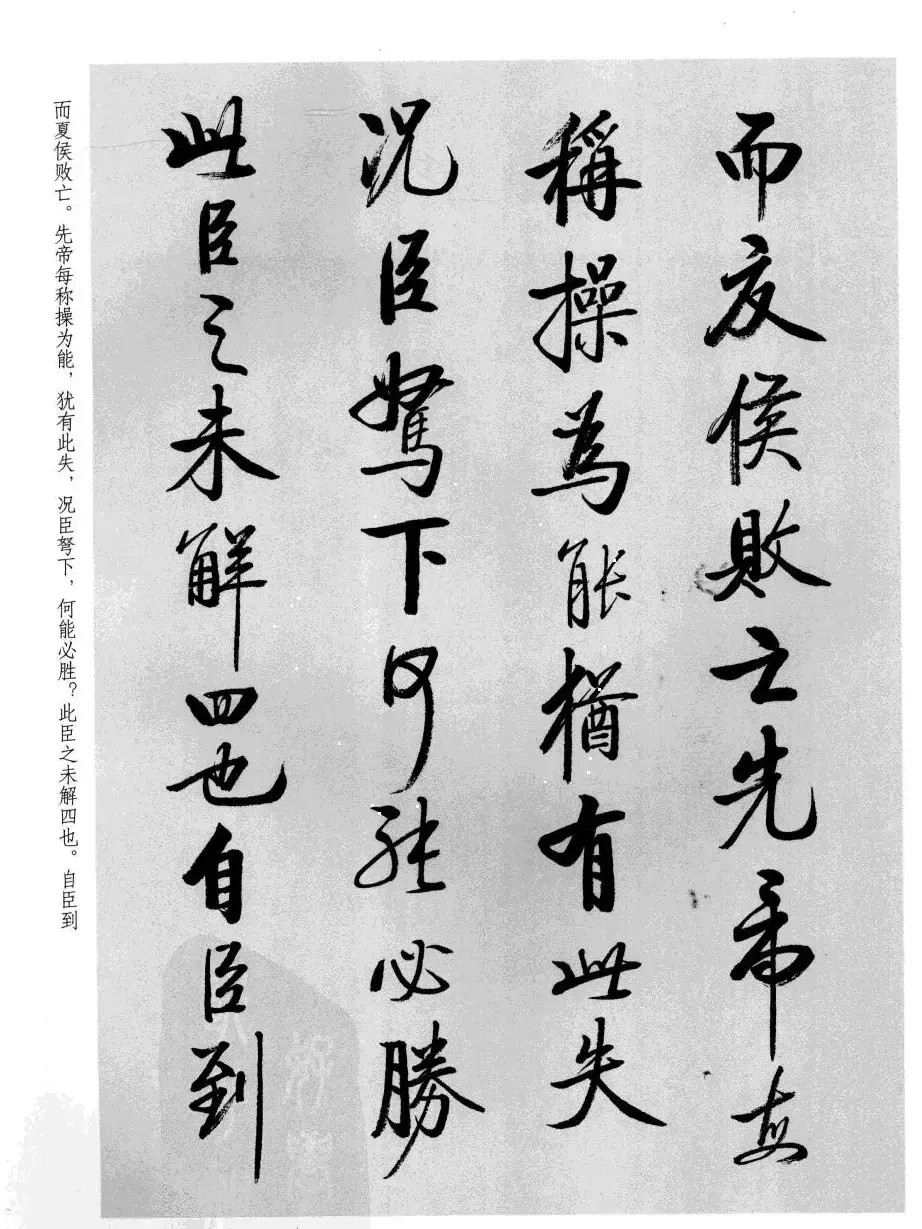 而夏侯敗亡先帝每
稱操為能猶有此失
況臣駑下何能必勝
此臣之未解四也自臣到
而夏侯败亡。先帝每称操为能，犹有此失，况臣驽下，何能必胜？此臣之未解四也。自臣到